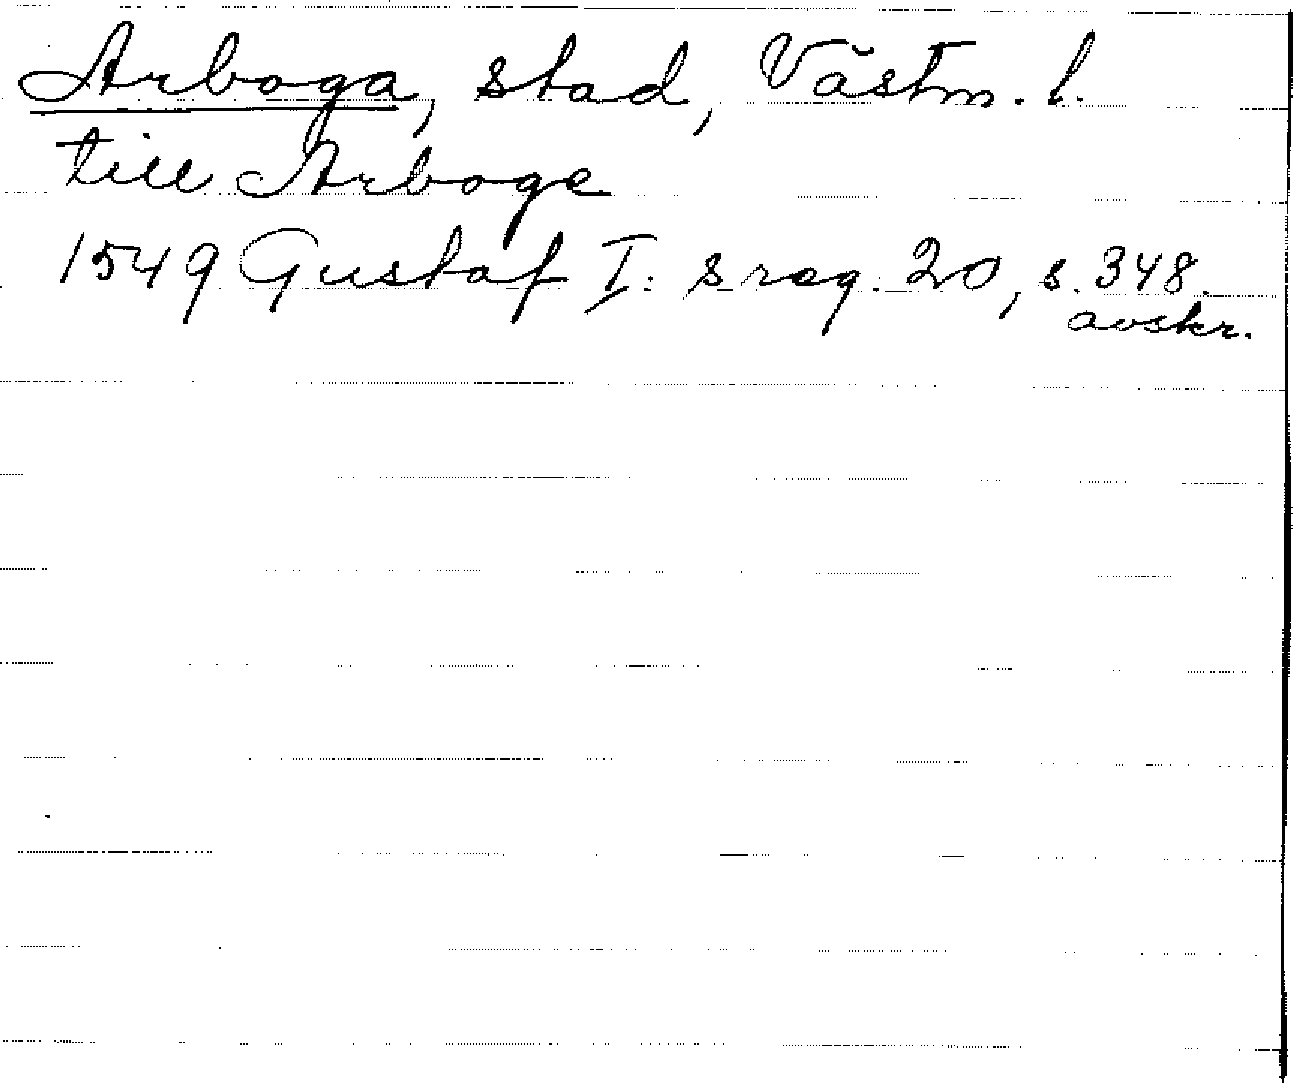 Arboga, stad, Västm. l.
till Arboge
1549 Gustaf I: s reg. 20, s. 348.
avskr.